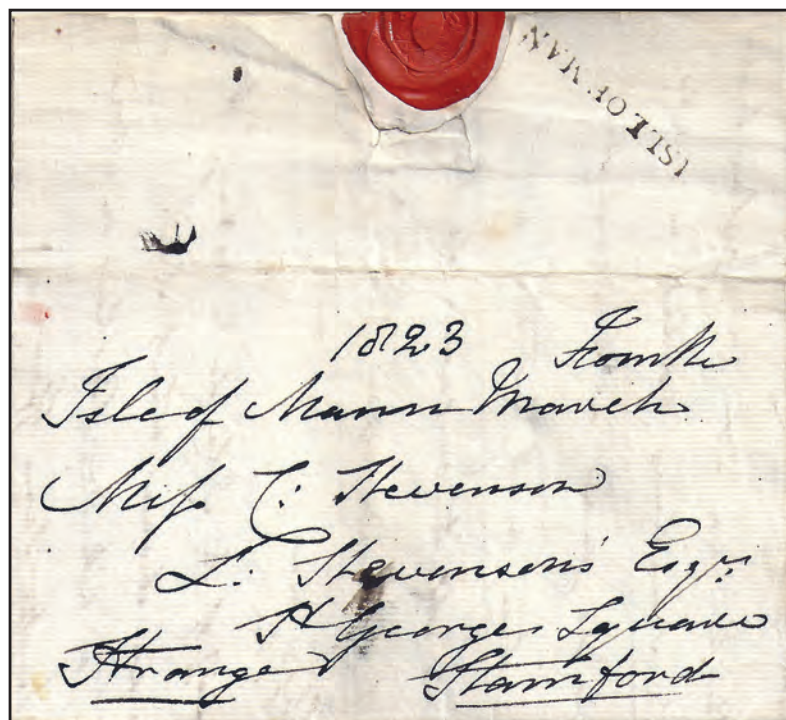 ISLE OF MAN
1823 Fourth
Isle of Mann March
Miss C: Stevenson
L: Stevenson's Esqr:
St Georges Square
Strange Stamford